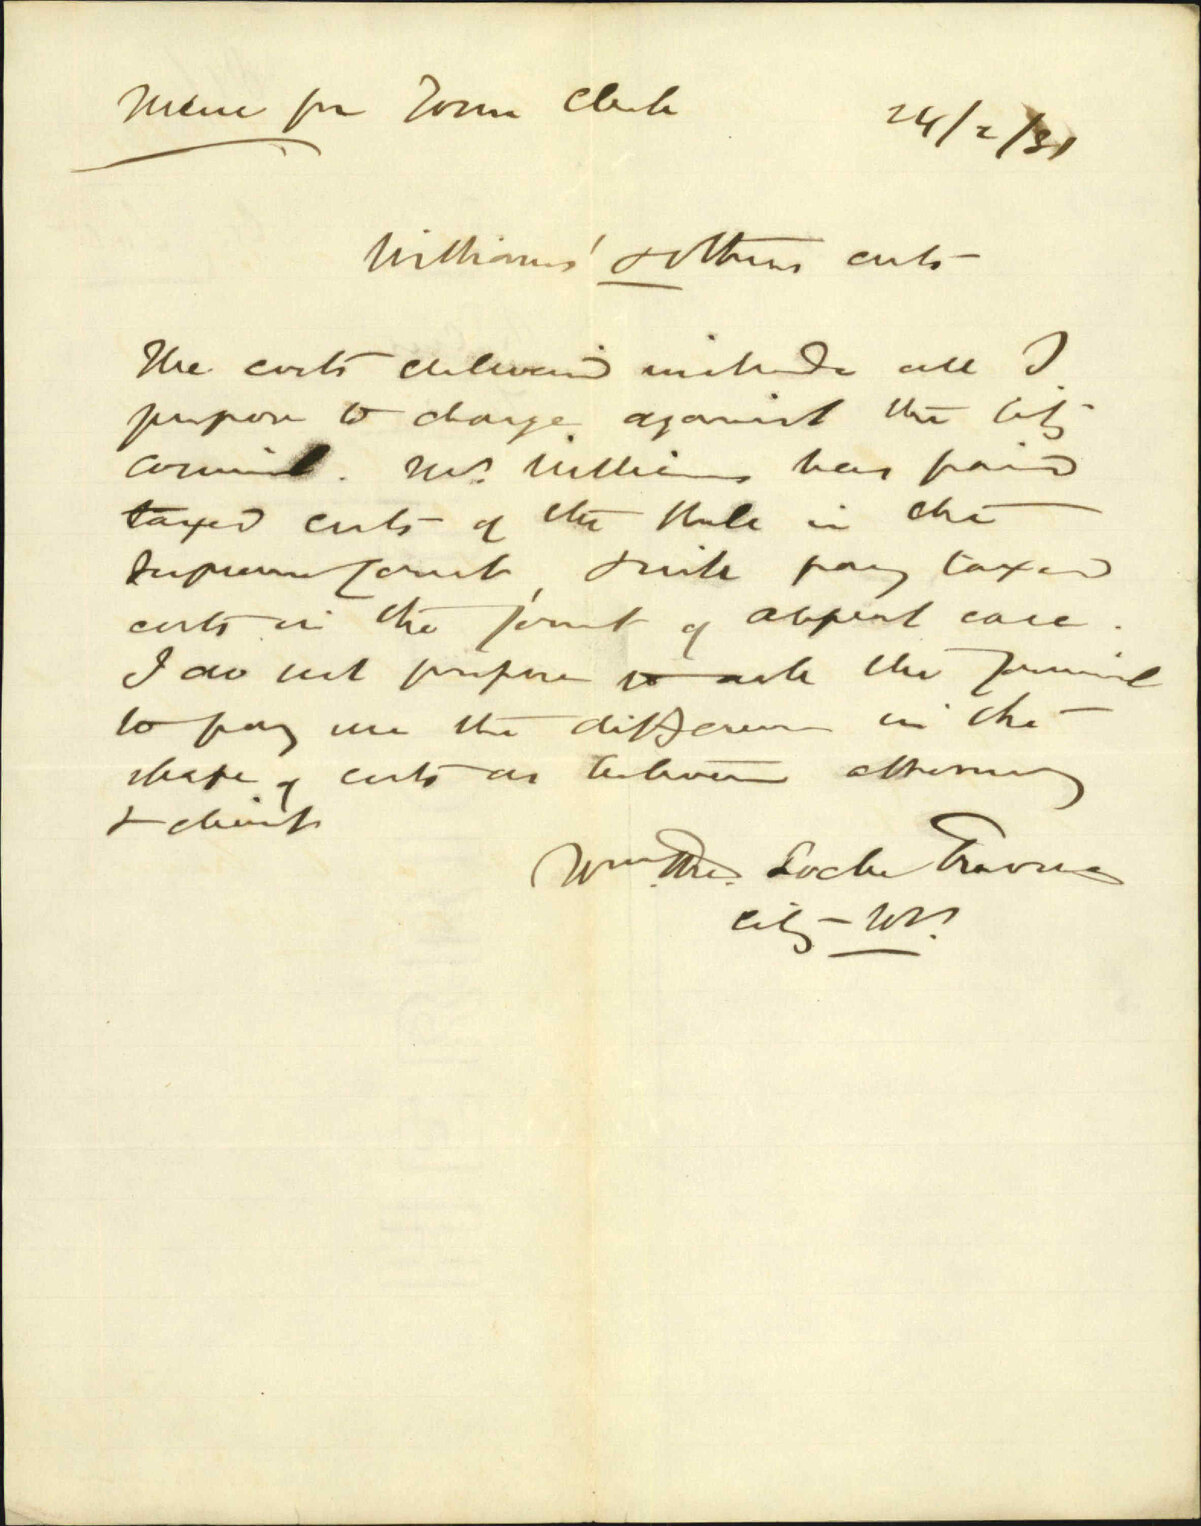 Memo for Town Clerk
24/2/81
Williams' & others costs
The costs delivered include all I
propose to charge against the City
Council. Mr. Williams has paid
taxed costs of the Rule in the
Supreme Court, & will pay taxed
costs in the Court of appeal case.
I do not propose to ask the Council
to pay me the difference in the
shape of costs as between attorney
& client
Wm. Tho. Locke Travers
City Sol.